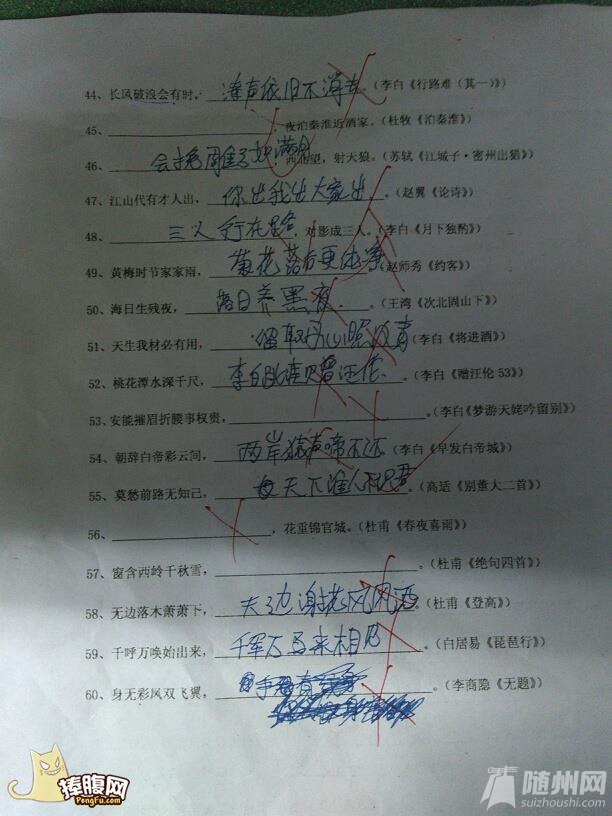 44、长风破浪会有时,涛声依旧不消去。(李白《行路难(其一)》)
45、。夜泊秦淮近酒家。(杜牧《泊秦淮》)
46、会挽雕弓如满月,西北望,射天狼。(苏轼《江城子·密州出猎》)
47、江山代有才人出,你出我出大家出。(赵翼《论诗》)
48、三人行在路,对影成三人。(李白《月下独酌》)
49、黄梅时节家家雨,菊花落后更纯净(赵师秀《约客》)
50、海日生残夜,落日养黑夜。(王湾《次北固山下》)
51、天生我材必有用,留取丹心照汗青(李白《将进酒》)
52、桃花潭水深千尺,李白汪汪。(李白《赠汪伦 53》)
53、安能摧眉折腰事权贵,。(李白《梦游天姥吟留别》)
54、朝辞白帝彩云间,两岸猿声啼不还。(李白《早发白帝城》)
55、莫愁前路无知己,天下谁人不识君。(高适《别董大二首》)
56、,花重锦官城。(杜甫《春夜喜雨》)
57、窗含西岭千秋雪,。(杜甫《绝句四首》)
58、无边落木萧萧下,天边谢花风风洒。(杜甫《登高》)
59、千呼万唤始出来,千军万马来相。(白居易《琵琶行》)
60、身无彩凤双飞翼,手。(李商隐《无题》)
捧腹网
PengFu.com
随州网
suizhoushi.com